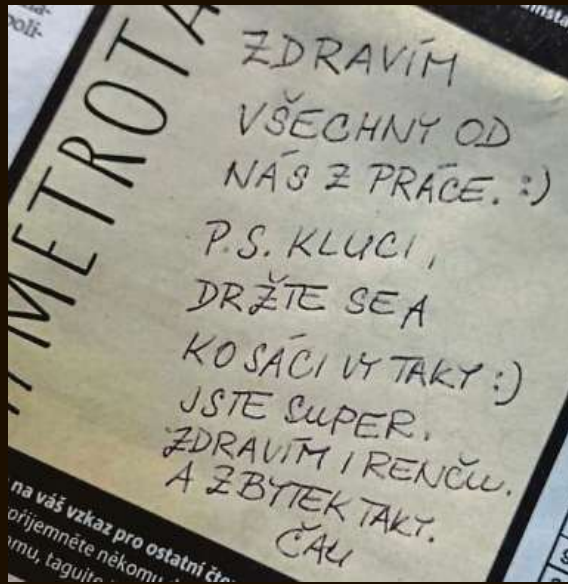 ZDRAVÍM
VŠECHNY OD
NÁS Z PRÁCE. :)
P.S. KLUCI,
DRŽTE SE A
KOSÁCI VY TAKY :)
JSTE SUPER.
ZDRAVÍM I RENČU.
A ZBYTEK TAKY.
ČAU
METROTA
na váš vzkaz pro ostatní
příjemněte někomu
tagujte